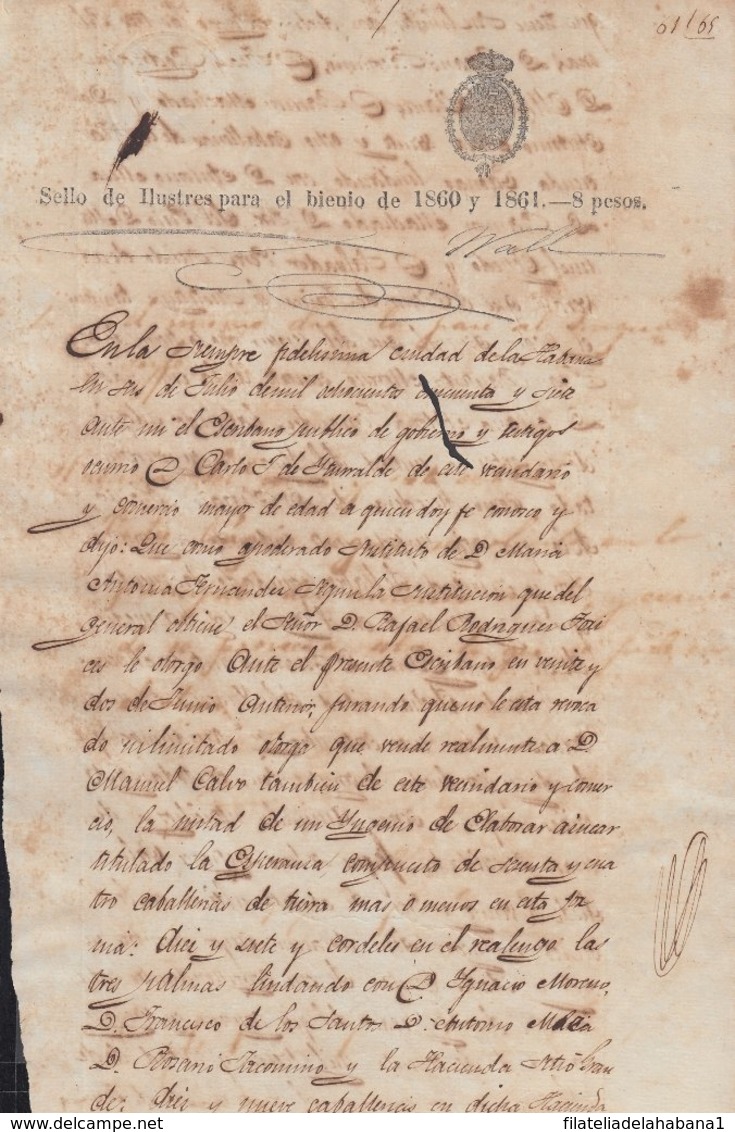 61 / 65
Sello de Ilustres para el bienio de 1860 y 1861.—8 pesos.
En la siempre fidelisima ciudad de la Habana
en seis de Julio de mil ochocientos cincuenta y siete
ante mi el Escribano publico de gobierno y testigos
ocurrio D. Carlos de Yturralde de este vecindario
y comercio mayor de edad a quien doy fe conosco y
dijo: Que como apoderado sustituto de D. Maria
Antonia Fernandez segun la sustitucion que del
general obtiene el Señor D. Rafael Rodriguez
ces le otorgo ante el presente Escribano en veinte y
dos de Junio anterior, jurando que no le esta revoca
do ni limitado otorga que vende realmente a D.
Manuel Calvo tambien de este vecindario y comer
cio, la mitad de un Yngenio de Elaborar azucar
titulado la Esperanza compuesto de y cua
tro caballerias de tierra mas o menos en esta for
ma: diez y siete y cordeles en el realengo las
tres palmas lindando con D. Ignacio Moreno,
D. Francisco de los Santos D. Antonio
D. Rosario y la Hacienda Sitio Gran
de: diez y nueve caballerias en dicha Hacienda
filateliadelahabana1